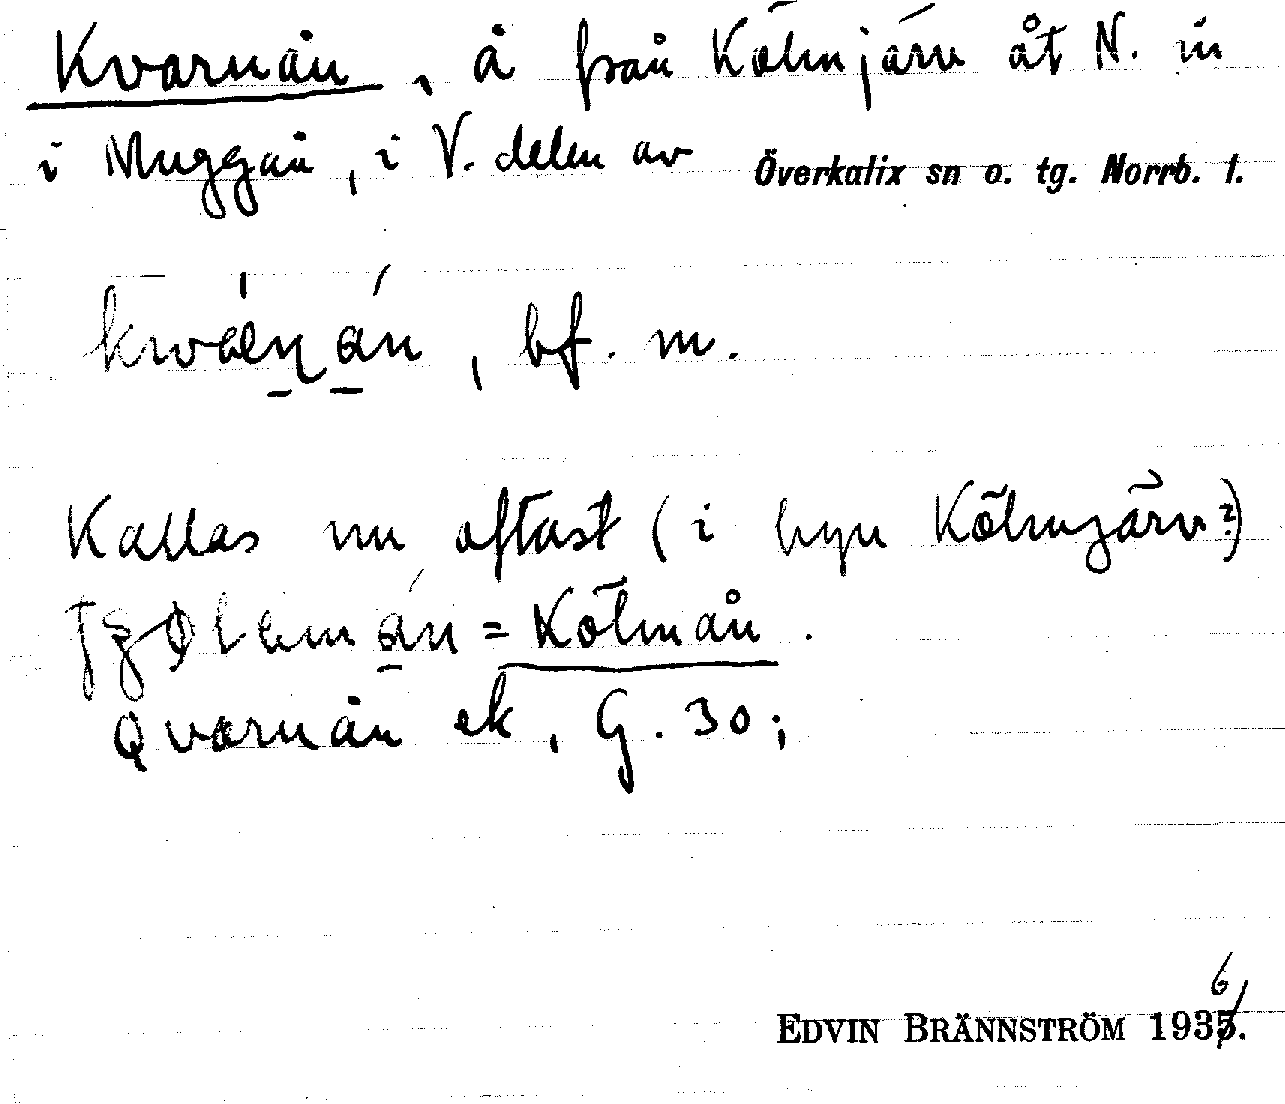 Kvarnån, å från Kölmjärv åt N. in
i Muggån, i V. delen av Överkalix sn o. tg. Norrb. l.
bf. m.
Kallas nu oftast (i byn Kölmjärv?)
= Kölmån.
Qvarnån ek, G. 30;
6
EDVIN BRÄNNSTRÖM 1935.